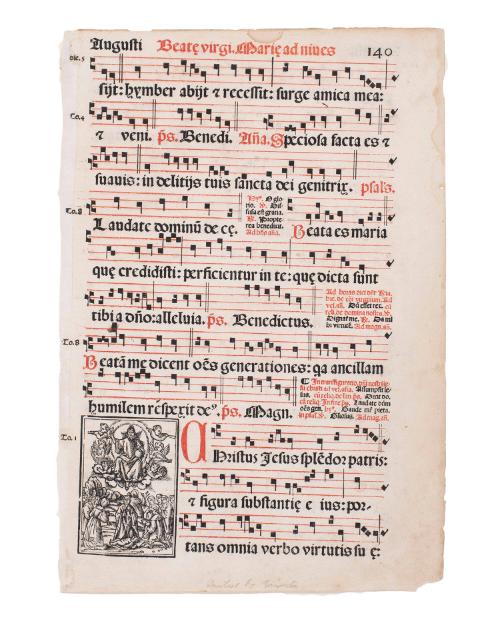 Augusti Beatę virgi. Marię ad niues 140
sijt: hymber abijt & recessit: surge amica mea:
To.4
& veni. ps. Benedi. Aña. Speciosa facta es &
suauis: in delitijs tuis sancta dei genitrix. psals.
To.8
Laudate dominū de cę. Beata es maria
quę credidisti: perficientur in te: quę dicta sunt
tibi a dño: alleluia. ps. Benedictus.
To.8
Beatā me dicent oēs generationes: qa ancillam
humilem respexit deꝰ ps. Magn.
To.1
CHristus Jesus splēdor patris:
& figura substantię e ius: por-
tans omnia verbo virtutis su ę: